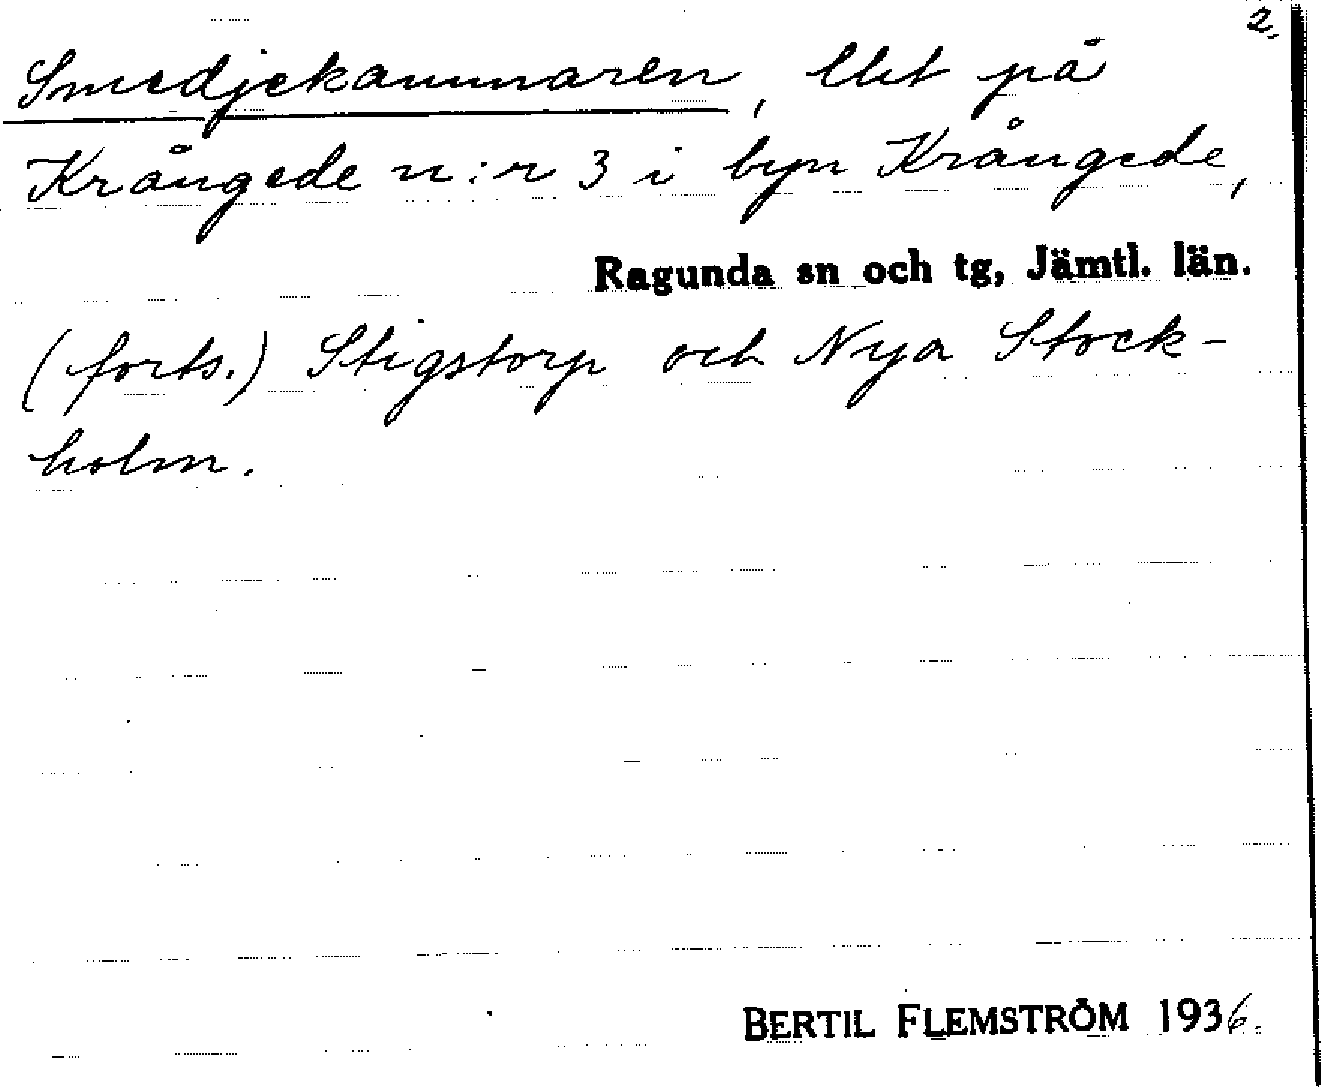 2.
Smedjekammaren, lht på
Krångede n:r 3 i byn Krångede,
Ragunda sn och tg, Jämtl. län.
(forts.) Stigstorp och Nya Stock-
holm.
BERTIL FLEMSTRÖM 1936.